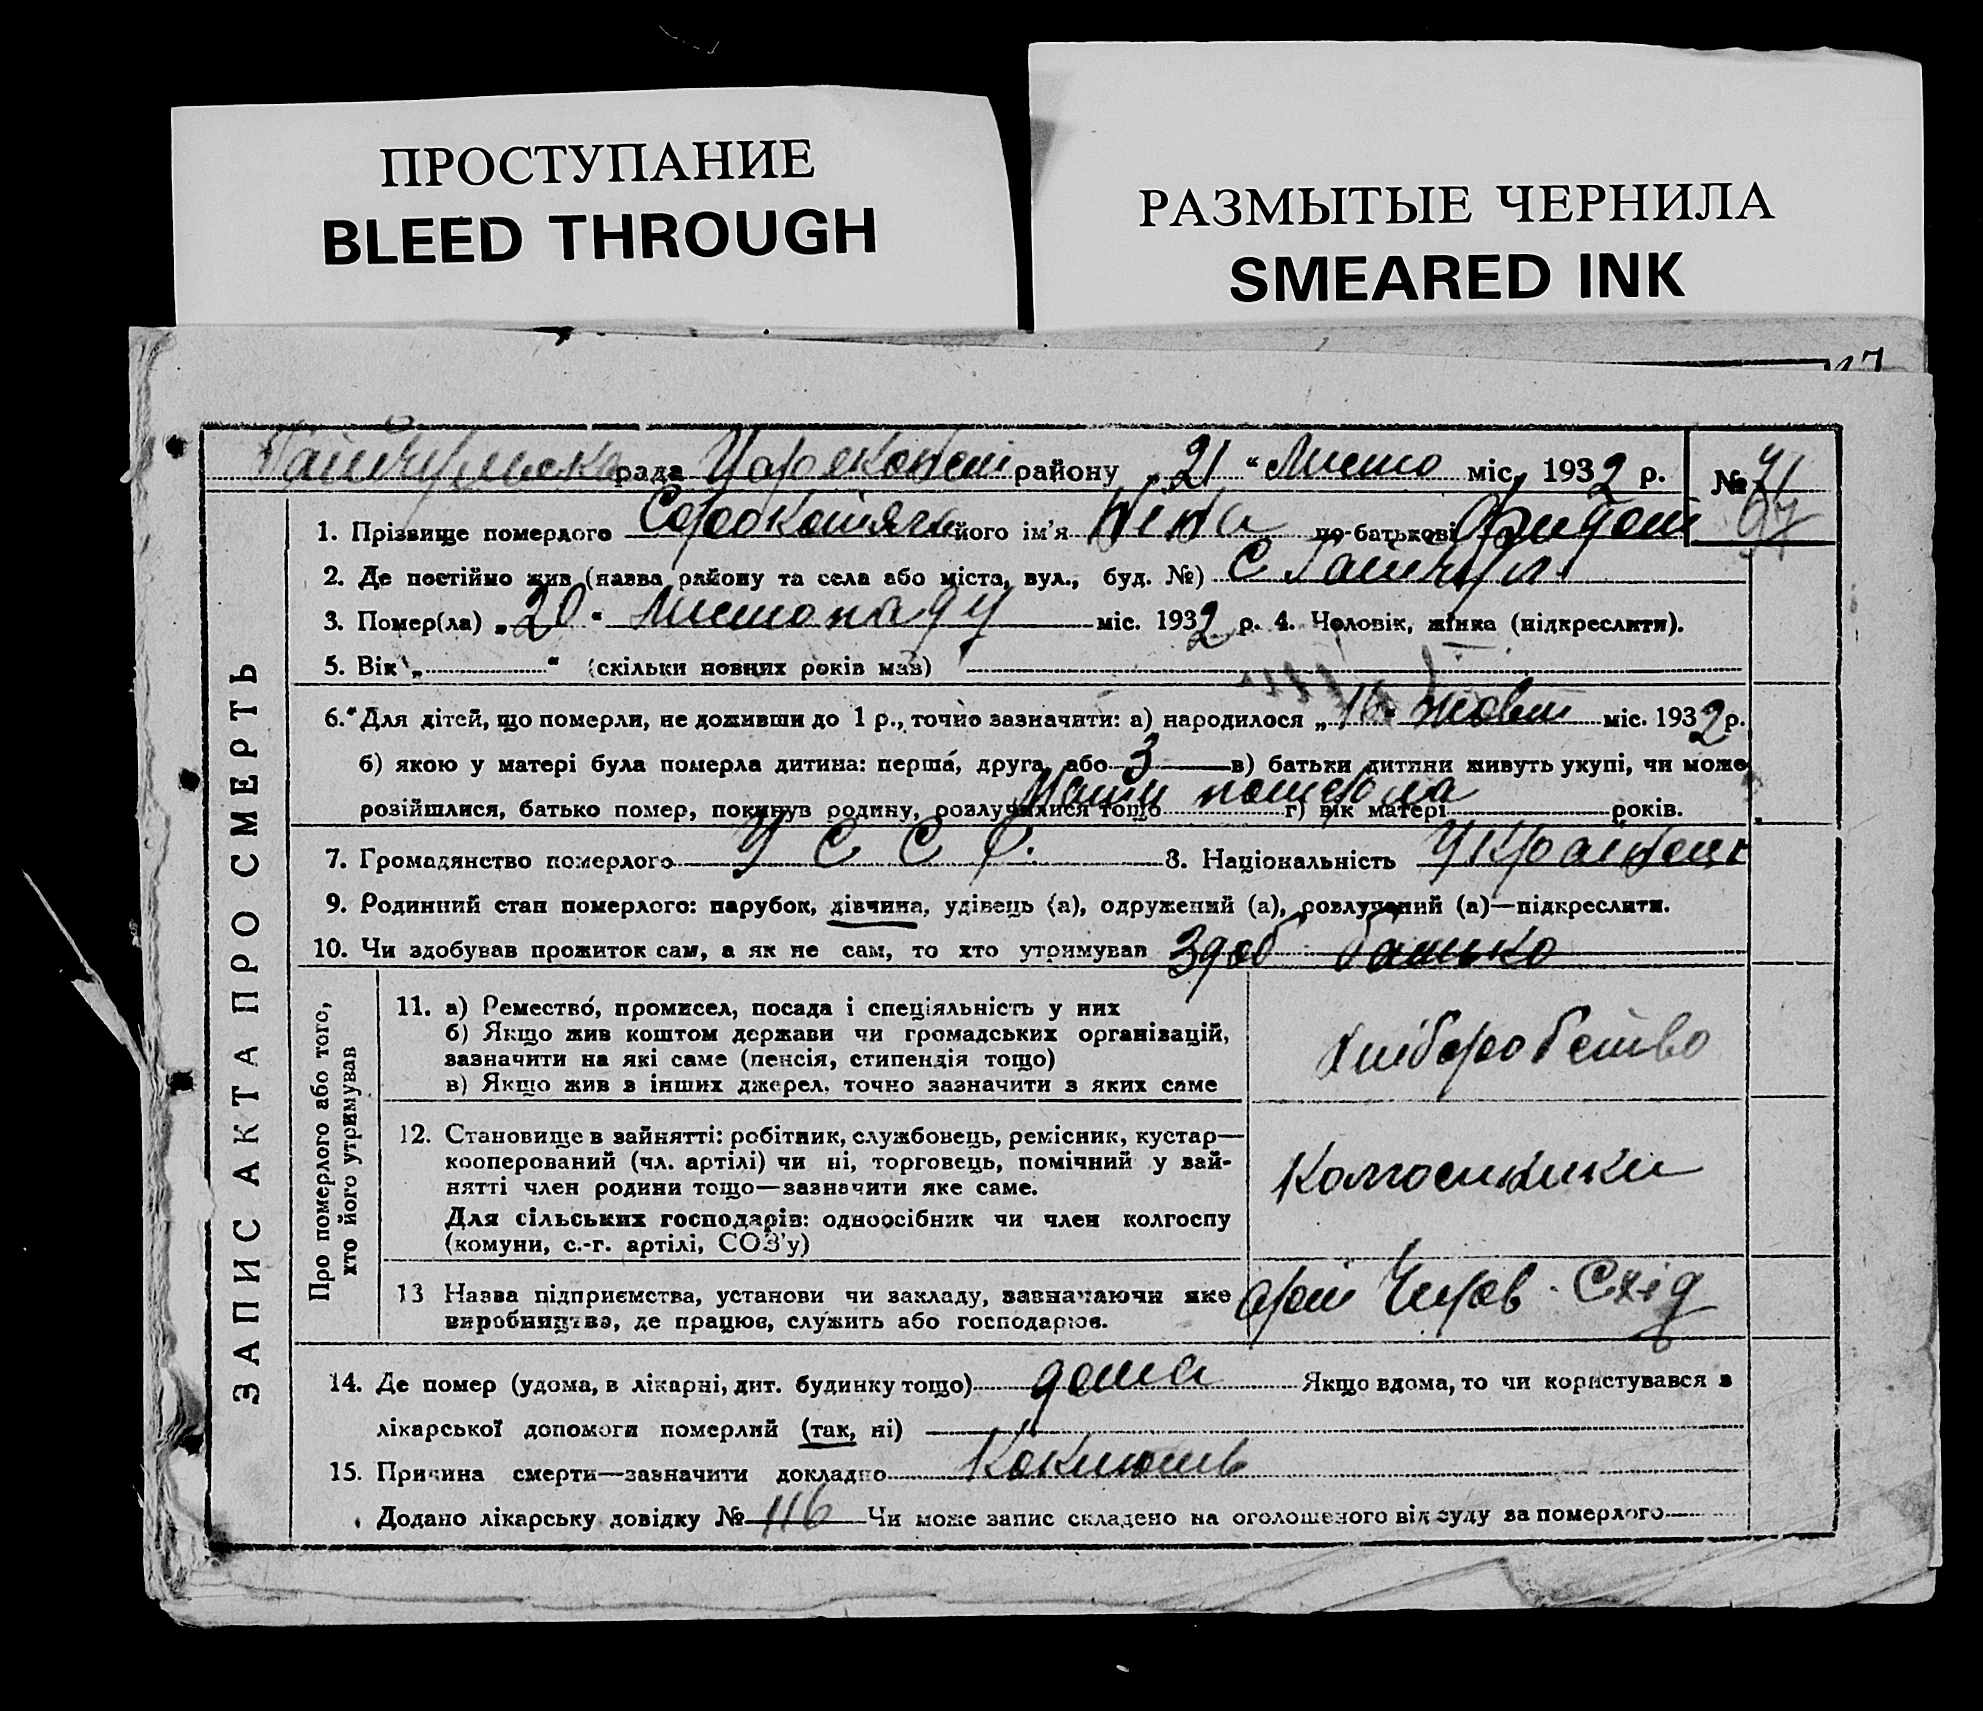 ПРОСТУПАНИЕ
BLEED THROUGH
РАЗМЫТЫЕ ЧЕРНИЛА
SMEARED INK
рада району „ 21 “ Листо міс. 1932 р. №
1. Прізвище померлого його ім'я Ніна по-батькові
2. Де постійно жив (назва району та села або міста, вул., буд. №) С Гайчул
3. Помер(ла) „ 20 “ Листопаду міс. 1932 р. 4. Чоловік, жінка (підкреслити).
5. Вік „ “ (скільки повних років мав)
6. Для дітей, що померли, не доживши до 1 р., точно зазначити: а) народилося „ “ жовт міс. 1932 р.
б) якою у матері була померла дитина: перша, друга, або 3 в) батьки дитини живуть укупі, чи може
розійшлися, батько помер, покинув родину, розлучилися тощо Мати померла г) вік матері років.
7. Громадянство померлого У С С Р. 8. Національність Українец
9. Родинний стан померлого: парубок, дівчина, удівець (а), одружений (а), розлучений (а)—підкреслити.
10. Чи здобував прожиток сам, а як не сам, то хто утримував Здоб батько
Про померлого або того,
хто його утримував
11. а) Ремество́, промисел, посада і спеціяльність у них
б) Якщо жив коштом держави чи громадських організацій,
зазначити на які саме (пенсія, стипендія тощо)
в) Якщо жив з інших джерел, точно зазначити з яких саме
Хліборобство
12. Становище в зайнятті: робітник, службовець, ремісник, кустар—
кооперований (чл. артілі) чи ні, торговець, помічний у зай-
нятті член родини тощо—зазначити яке саме.
Для сільських господарів: одноосібник чи член колгоспу
(комуни, с.-г. артілі, СОЗ'у)
Колгоспники
13 Назва підприємства, установи чи закладу, зазначаючи яке
виробництво, де працює, служить або господарює.
арт Черв. Схід
14. Де помер (удома, в лікарні, дит. будинку тощо) дома Якщо вдома, то чи користувався з
лікарської допомоги померлий (так, ні)
15. Причина смерти—зазначити докладно Коклюшь
Додано лікарську довідку № 116 Чи може запис складено на оголошеного від суду за померлого
ЗАПИС АКТА ПРО СМЕРТЬ